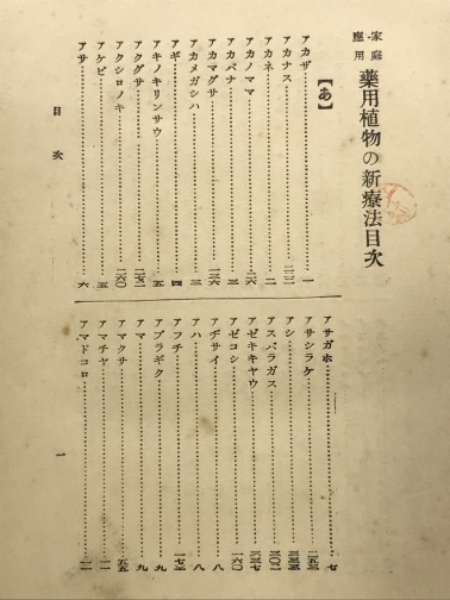 家庭應用 藥用植物の新療法目次
【あ】
アカザ……一
アカナス
アカネ……二
アカノママ……二六
アカバナ……三
アカマグサ……一三六
アカメガシハ……三
アギ……四
アキノキリンサウ……五
アクグサ
アクシロノキ……二六〇
アケビ……五
アサ……六
アサガホ……七
アサシラケ
アシ
アスパラガス……三〇二
アゼキキヤウ……三三七
アゼコシ……一六〇
アヂサイ……八
アハ……八
アフチ
アブラギク……九
アマ……九
アマクサ
アマチヤ……一一
アマドコロ……一一
目次
一